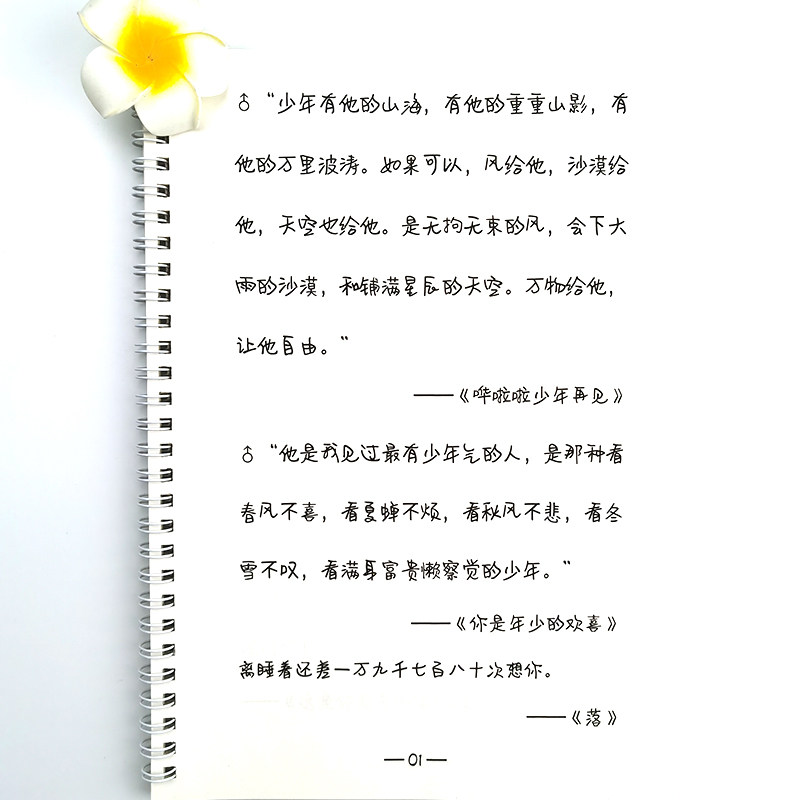 ♂ “少年有他的山海，有他的重重山影，有
他的万里波涛。如果可以，风给他，沙漠给
他，天空也给他。是无拘无束的风，会下大
雨的沙漠，和铺满星辰的天空。万物给他，
让他自由。”
——《哗啦啦少年再见》
♂ “他是我见过最有少年气的人，是那种看
春风不喜，看夏蝉不烦，看秋风不悲，看冬
雪不叹，看满身富贵懒察觉的少年。”
——《你是年少的欢喜》
离睡着还差一万九千七百八十次想你。
——《落》
—01—